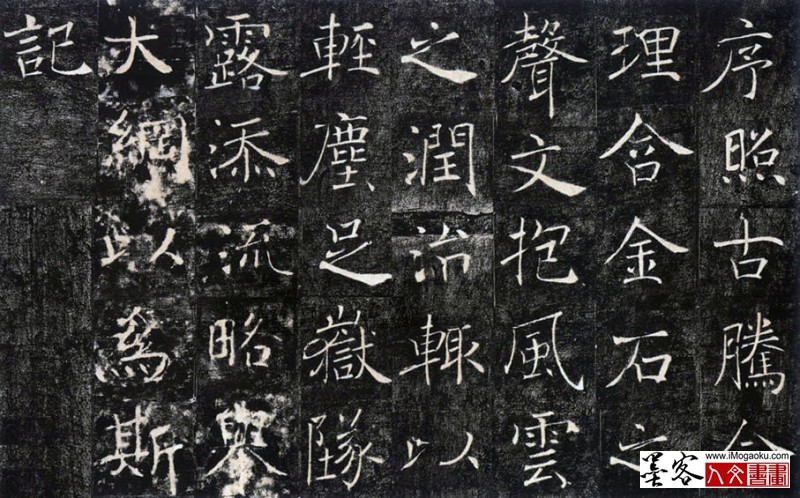 序照古騰今
理含金石之
聲文抱風雲
之潤治輒以
輕塵足嶽墜
露添流略舉
大綱以爲斯
記
墨客
www.iMogaoku.com
人文書畫